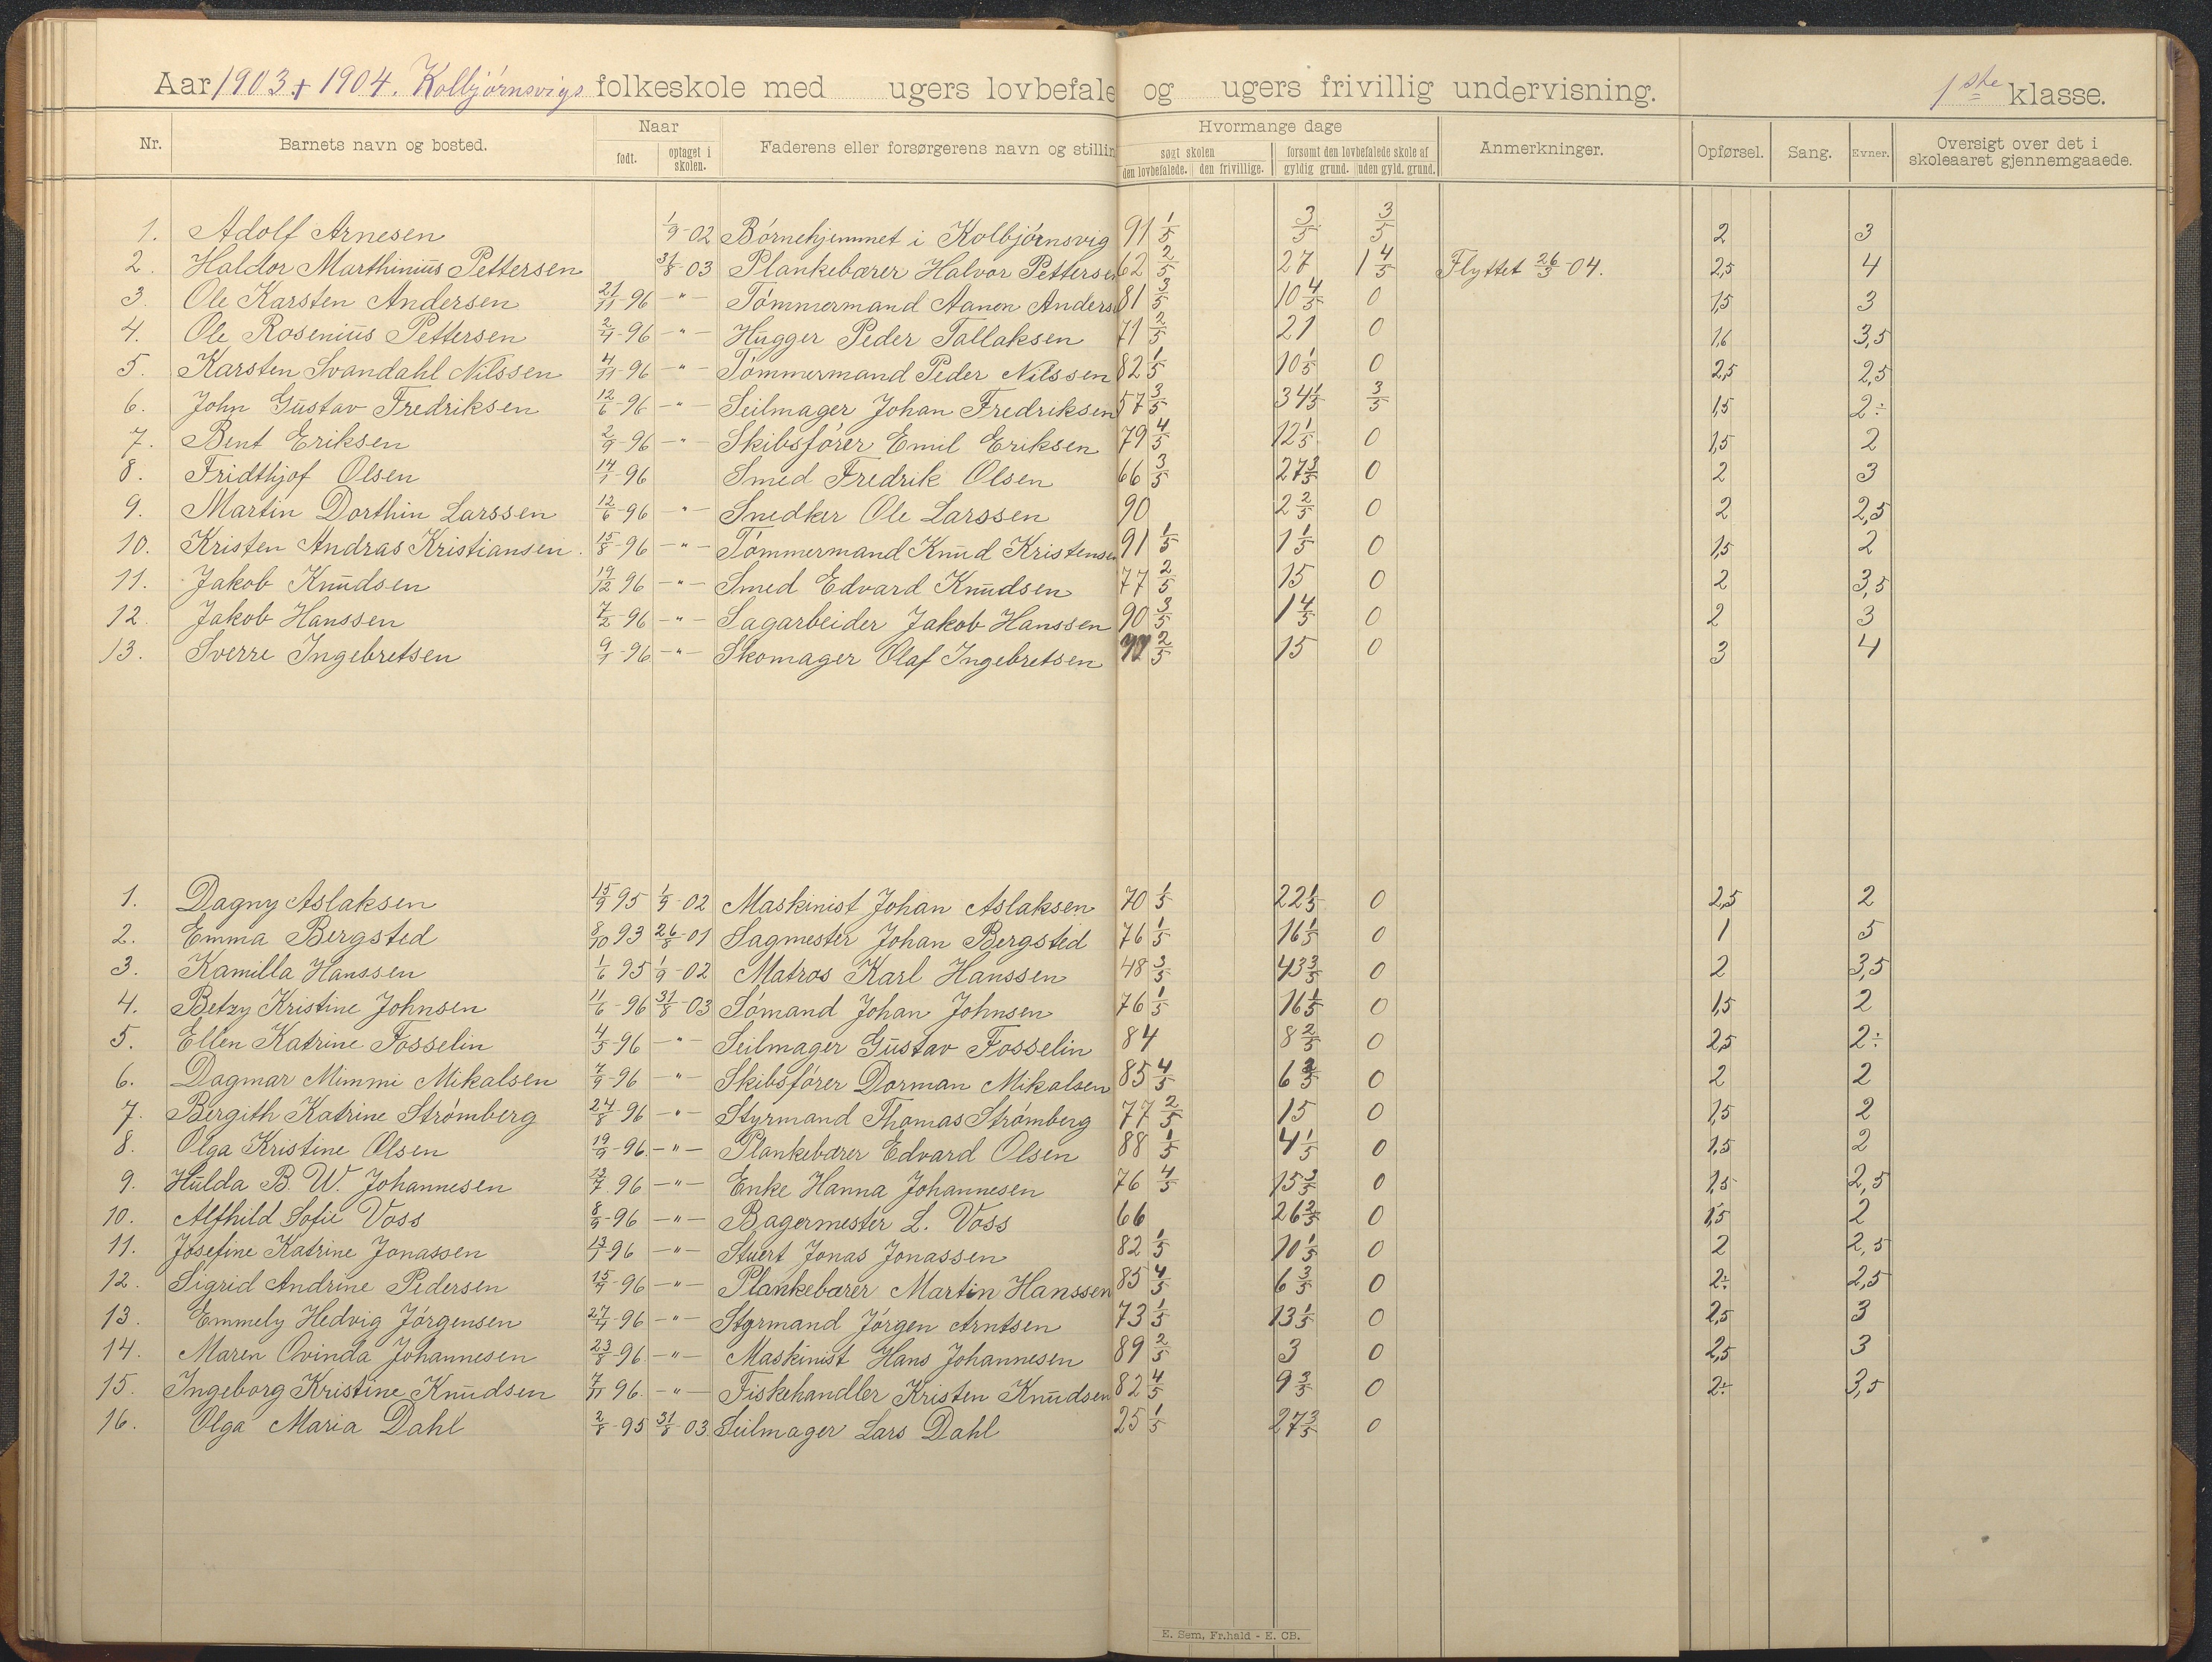 Aar 1903 + 1904. Kolbjørnsvigs folkeskole med ugers lovbefale og ugers frivillig undervisning. 1ste klasse.
Nr. Barnets navn og bosted. Naar født. optaget i skolen. Faderens eller forsørgerens navn og stillin Hvormange dage søgt skolen den lovbefalede. den frivillige. forsømt den lovbefalede skole af gyldig grund. uden gyld. grund. Anmerkninger. Opførsel. Sang. Evner. Oversigt over det i skoleaaret gjennemgaaede.
1. Adolf Arnesen 1/9-02 Børnehjemmet i Kolbjørnsvig 91 1/5 3/5 3/5 2 3
2. Haldor Marthinius Pettersen 31/8 03 Plankebærer Halvor Pettersen 62 2/5 27 1 4/5 Flyttet 26/3-04. 2,5 4
3. Ole Karsten Andersen 21/11-96 -"- Tømmermand Aanon Anders 81 3/5 10 4/5 0 1,5 3
4. Ole Rosenius Pettersen 2/4-96 -"- Hugger Peder Tallaksen 71 2/5 21 0 1,6 3,5
5. Karsten Svandahl Nilssen 4/11-96 -"- Tømmermand Peder Nilssen 82 1/5 10 1/5 0 2,5 2,5
6. John Gustav Fredriksen 12/6-96 -"- Seilmager Johan Fredriksen 57 3/5 34 1/5 3/5 1,5 2÷
7. Bent Eriksen 2/9-96 -"- Skibsfører Emil Eriksen 79 4/5 12 1/5 0 1,5 2
8. Fridthjof Olsen 14/1 96 Smed Fredrik Olsen 66 3/5 27 3/5 0 2 3
9. Martin Dorthin Larssen 12/6-96 -"- Snedker Ole Larssen 90 2 2/5 0 2 2,5
10. Kristen Andras Kristiansen. 15/8-96 -"- Tømmermand Knud Kristensen 91 1/5 1 1/5 0 1,5 2
11. Jakob Knudsen 19/12 96 -"- Smed Edvard Knudsen 77 2/5 15 0 2 3,5
12. Jakob Hanssen 7/2-96 -"- Sagarbeider Jakob Hanssen 90 3/5 1 4/5 0 2 3
13. Sverre Ingebretsen 9/1-96 -"- Skomager Olaf Ingebretsen 2/5 15 0 3 4
1. Dagny Aslaksen 15/9 95 1/9-02 Maskinist Johan Aslaksen 70 1/5 22 1/5 0 2,5 2
2. Emma Bergsted 8/10 93 26/8-01 Sagmester Johan Bergsted 76 1/5 16 1/5 0 1 5
3. Kamilla Hanssen 1/6 95 1/9-02 Matros Karl Hanssen 48 3/5 43 3/5 0 2 3,5
4. Betzy Kristine Johnsen 11/6-96 31/8-03 Sømand Johan Johnsen 76 1/5 16 1/5 0 1,5 2
5. Ellen Katrine Fosselin 4/5-96 -"- Seilmager Gustav Fosselin 84 8 2/5 0 2,5 2÷
6. Dagmar Mimmi Mikalsen 7/9-96 -"- Skibsfører Dorman Mikalsen 85 4/5 6 3/5 0 2 2
7. Bergith Katrine Strømberg 24/8-96 -"- Styrmand Thomas Strømberg 77 2/5 15 0 1,5 2
8. Olga Kristine Olsen 19/9-96. -"- Plankebærer Edvard Olsen 88 1/5 4 1/5 0 1,5 2
9. Hulda B. W. Johannesen 96 -"- Enke Hanna Johannesen 76 4/5 15 3/5 0 1,5 2,5
10. Alfhild Sofie Voss 8/9-96 -"- Bagermester L. Voss 66 26 2/5 0 1,5 2
11. Josefine Katrine Jonassen 13/1 96 -"- Stuert Jonas Jonassen 82 1/5 10 1/5 0 2 2,5
12. Sigrid Andrine Pedersen 15/9-96 -"- Plankebærer Martin Hanssen 85 4/5 6 3/5 0 2÷ 2,5
13. Emmely Hedvig Jørgensen 27/4-96 -"- Styrmand Jørgen Arntsen 73 1/5 13 1/5 0 2,5 3
14. Maren Ovinda Johannesen 23/8-96. -"- Maskinist Hans Johannesen 89 2/5 3 0 2,5 3
15. Ingeborg Kristine Knudsen 7/11 96. -"- Fiskehandler Kristen Knudsen 82 4/5 9 3/5 0 2÷ 3,5
16. Olga Maria Dahl 2/8-95 31/8-03 Seilmager Lars Dahl 25 1/5 27 3/5 0
E. Sem, Fr.hald - E. CB.